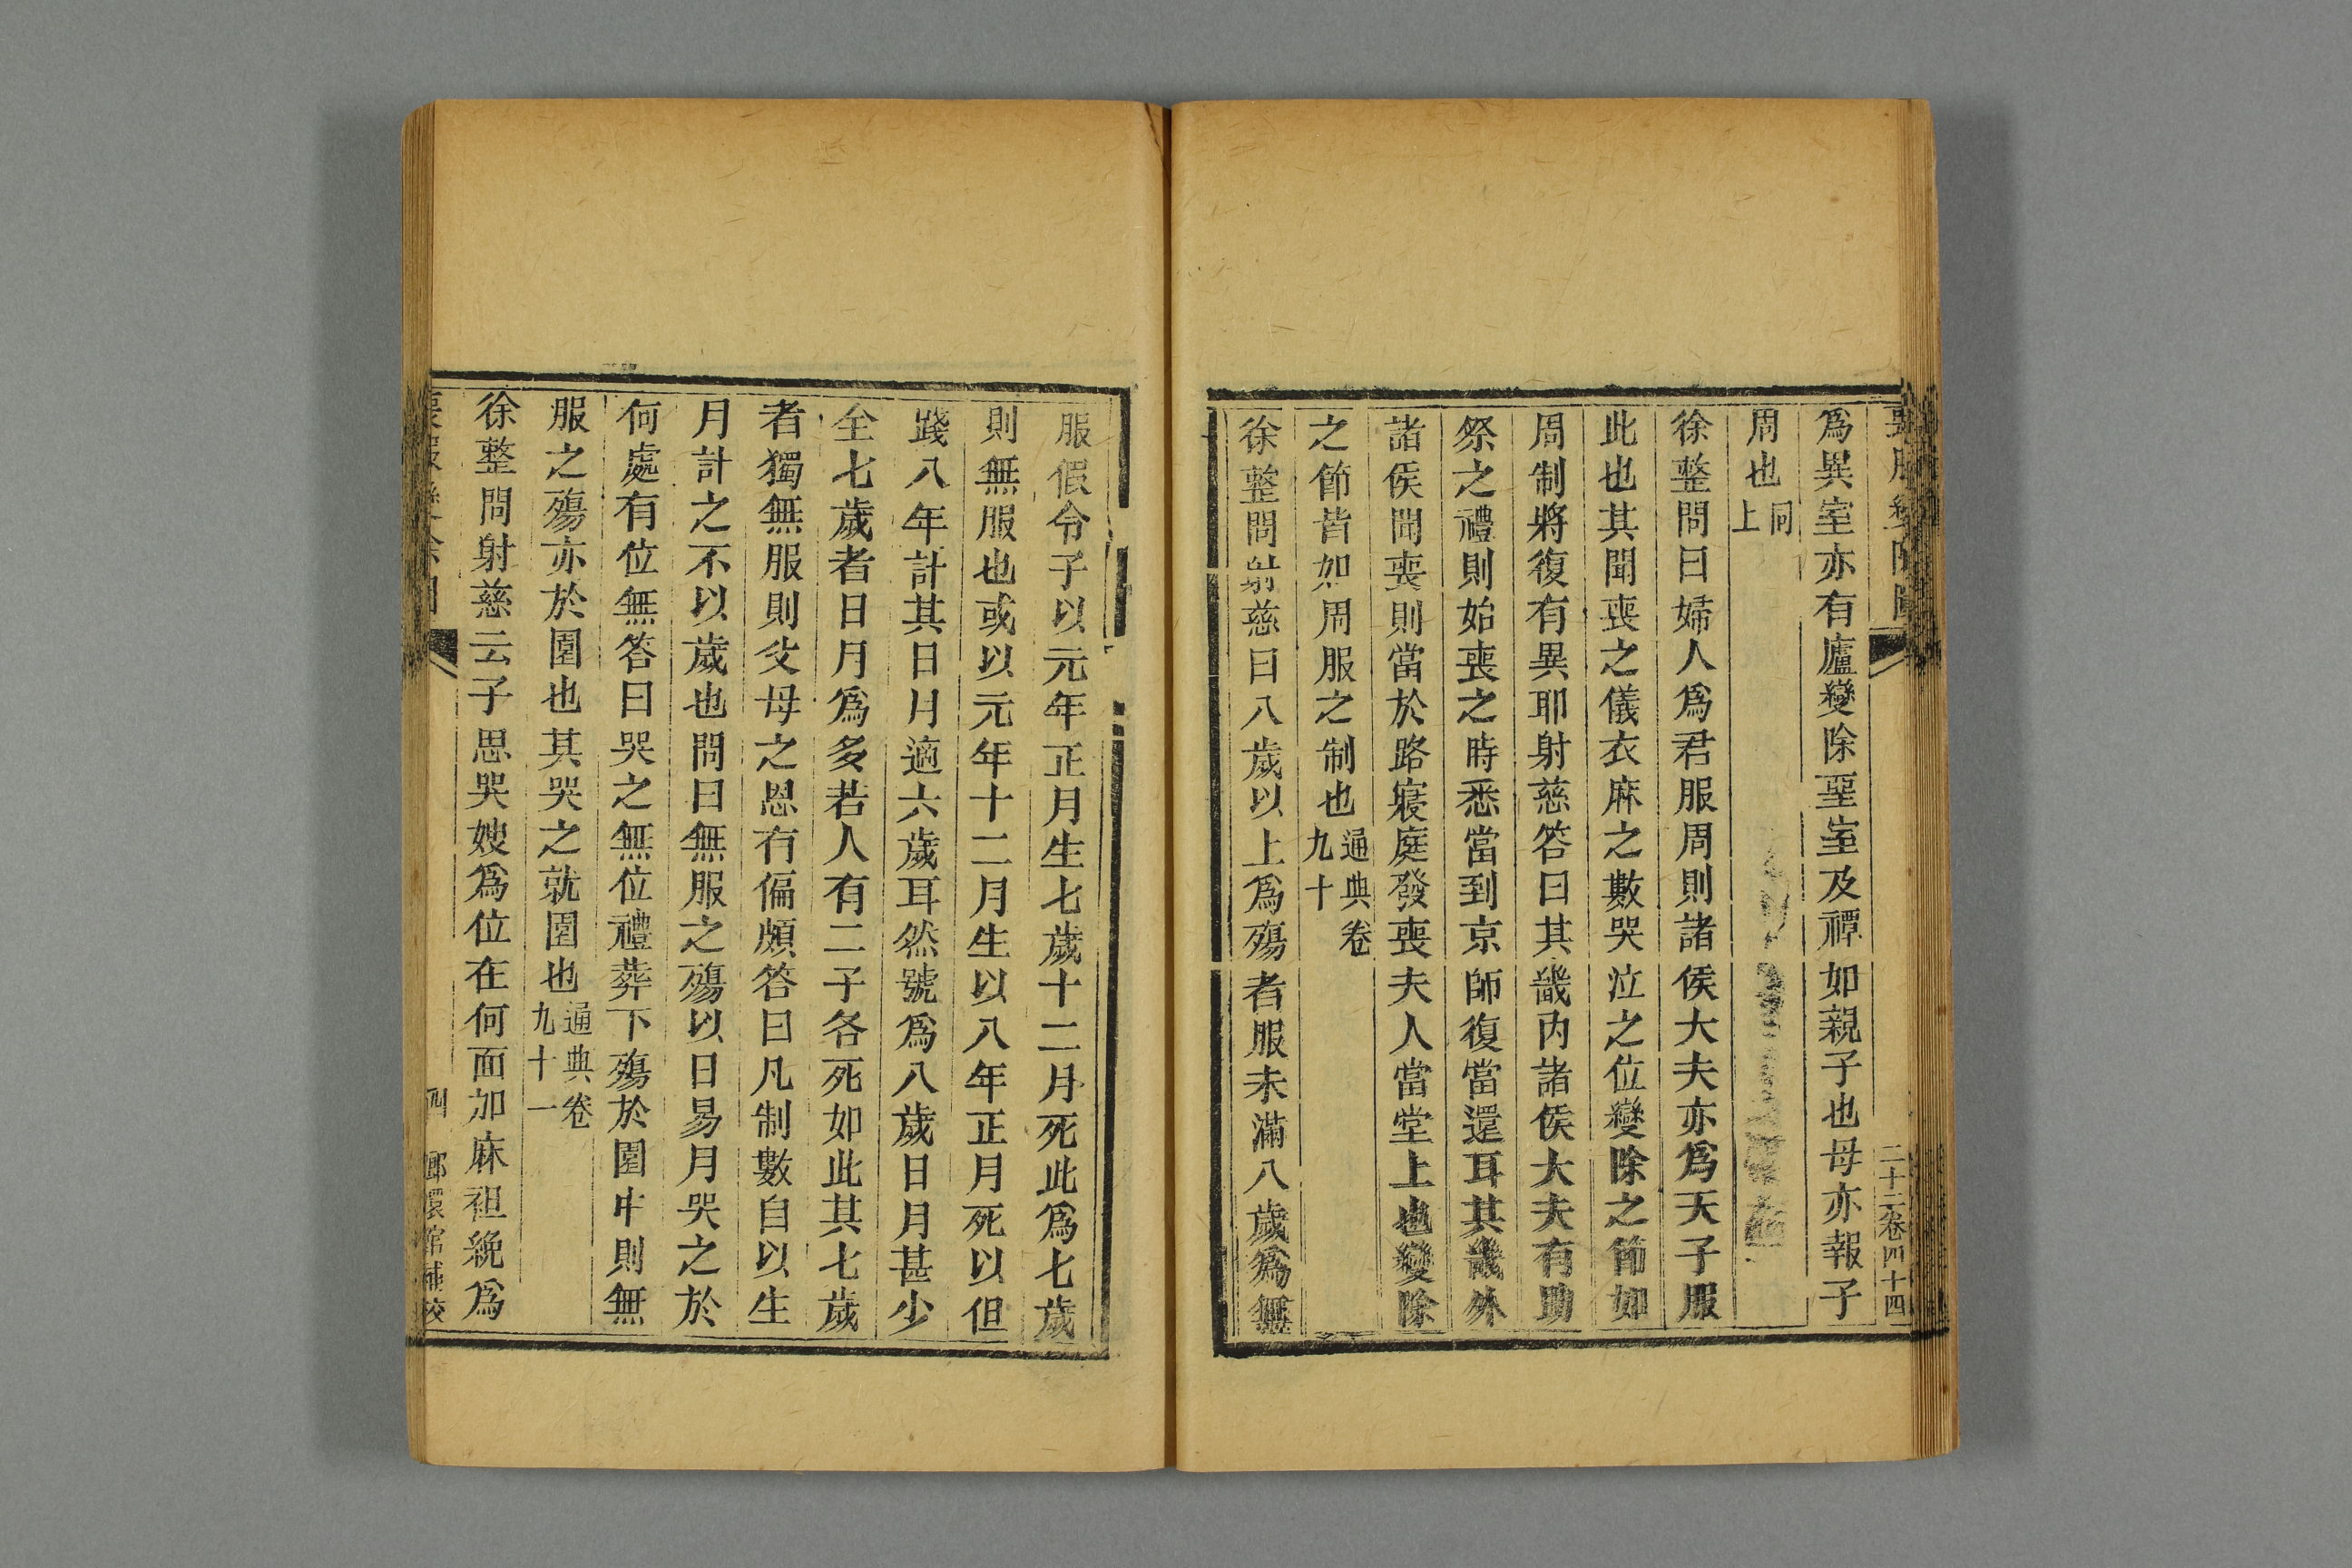 喪服變除圖
二十三卷四十四
爲異室亦有廬變除堊室及禫如親子也母亦報子
周也同上
徐整問曰婦人爲君服周則諸侯大夫亦爲天子服
此也其聞喪之儀衣麻之數哭泣之位變除之節如
周制將復有異耶射慈答曰其畿內諸侯大夫有助
祭之禮則始喪之時悉當到京師復當還耳其畿外
諸侯聞喪則當於路寢庭發喪夫人當堂上也變除
之節皆如周服之制也通典卷九十
徐整問射慈曰八歲以上爲殤者服未滿八歲爲無
服假令子以元年正月生七歲十二月死此爲七歲
則無服也或以元年十二月生以八年正月死以但
踐八年計其日月適六歲耳然號爲八歲日月甚少
全七歲者日月爲多若人有二子各死如此其七歲
者獨無服則父母之恩有偏頗答曰凡制數自以生
月計之不以歲也問曰無服之殤以日易月哭之於
何處有位無答曰哭之無位禮葬下殤於園中則無
服之殤亦於園也其哭之就園也通典卷九十一
徐整問射慈云子思哭嫂爲位在何面加麻袒絻爲
喪服變除圖
四
嫏嬛館補校